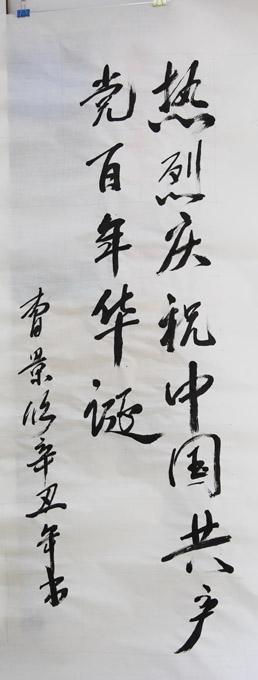 热烈庆祝中国共产
党百年华诞
曹景修辛丑年书